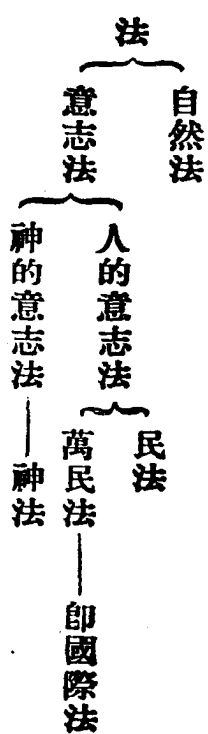 法
自然法
意志法
人的意志法
神的意志法
神法
民法
萬民法
卽國際法